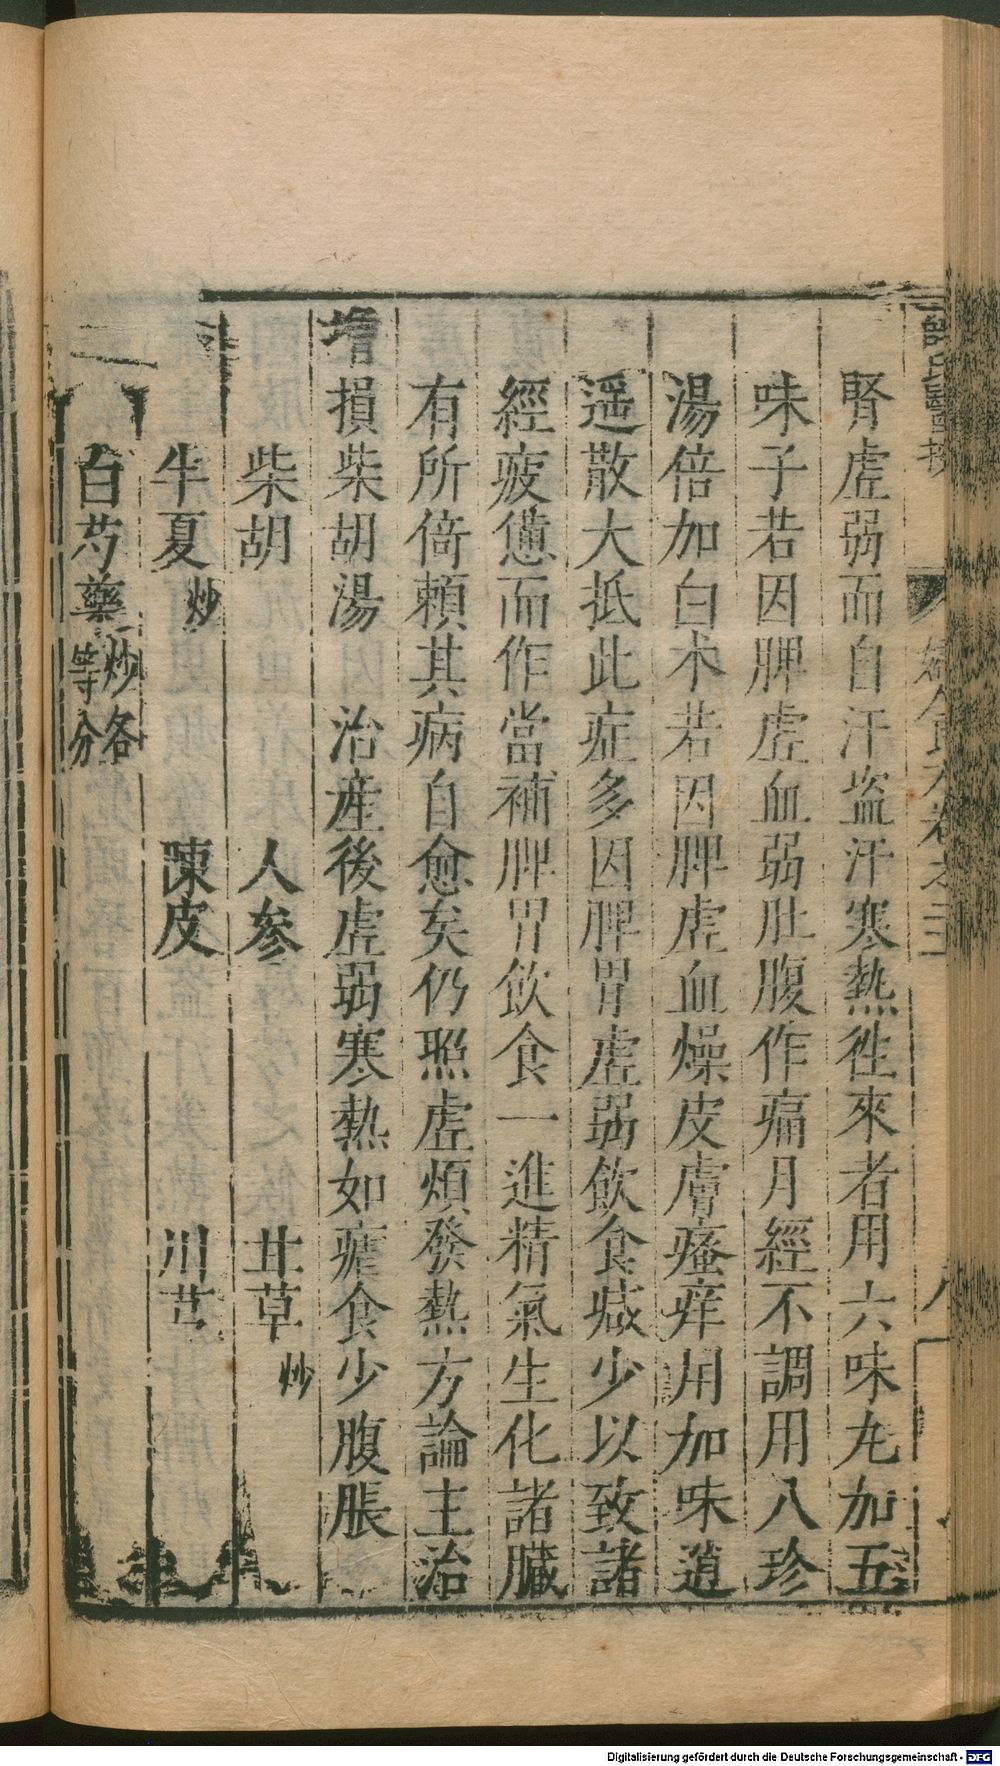 腎虛弱而自汗盗汗寒熱徃來者用六味丸加五
味子若因脾虛血弱肚腹作痛月經不調用八珍
湯倍加白术若因脾虛血燥皮膚瘙痒用加味逍
遥散大抵此症多因脾胃虛弱飲食减少以致諸
經疲憊而作當補脾胃飲食一進精氣生化諸臟
有所倚頼其病自愈矣仍照虛煩發熱方論主治
增損柴胡湯　治産後虛弱寒熱如瘧食少腹脹
柴胡　人参　甘草炒
半夏炒　陳皮　川芎
白芍藥炒各等分
Digitalisierung gefördert durch die Deutsche Forschungsgemeinschaft - DFG